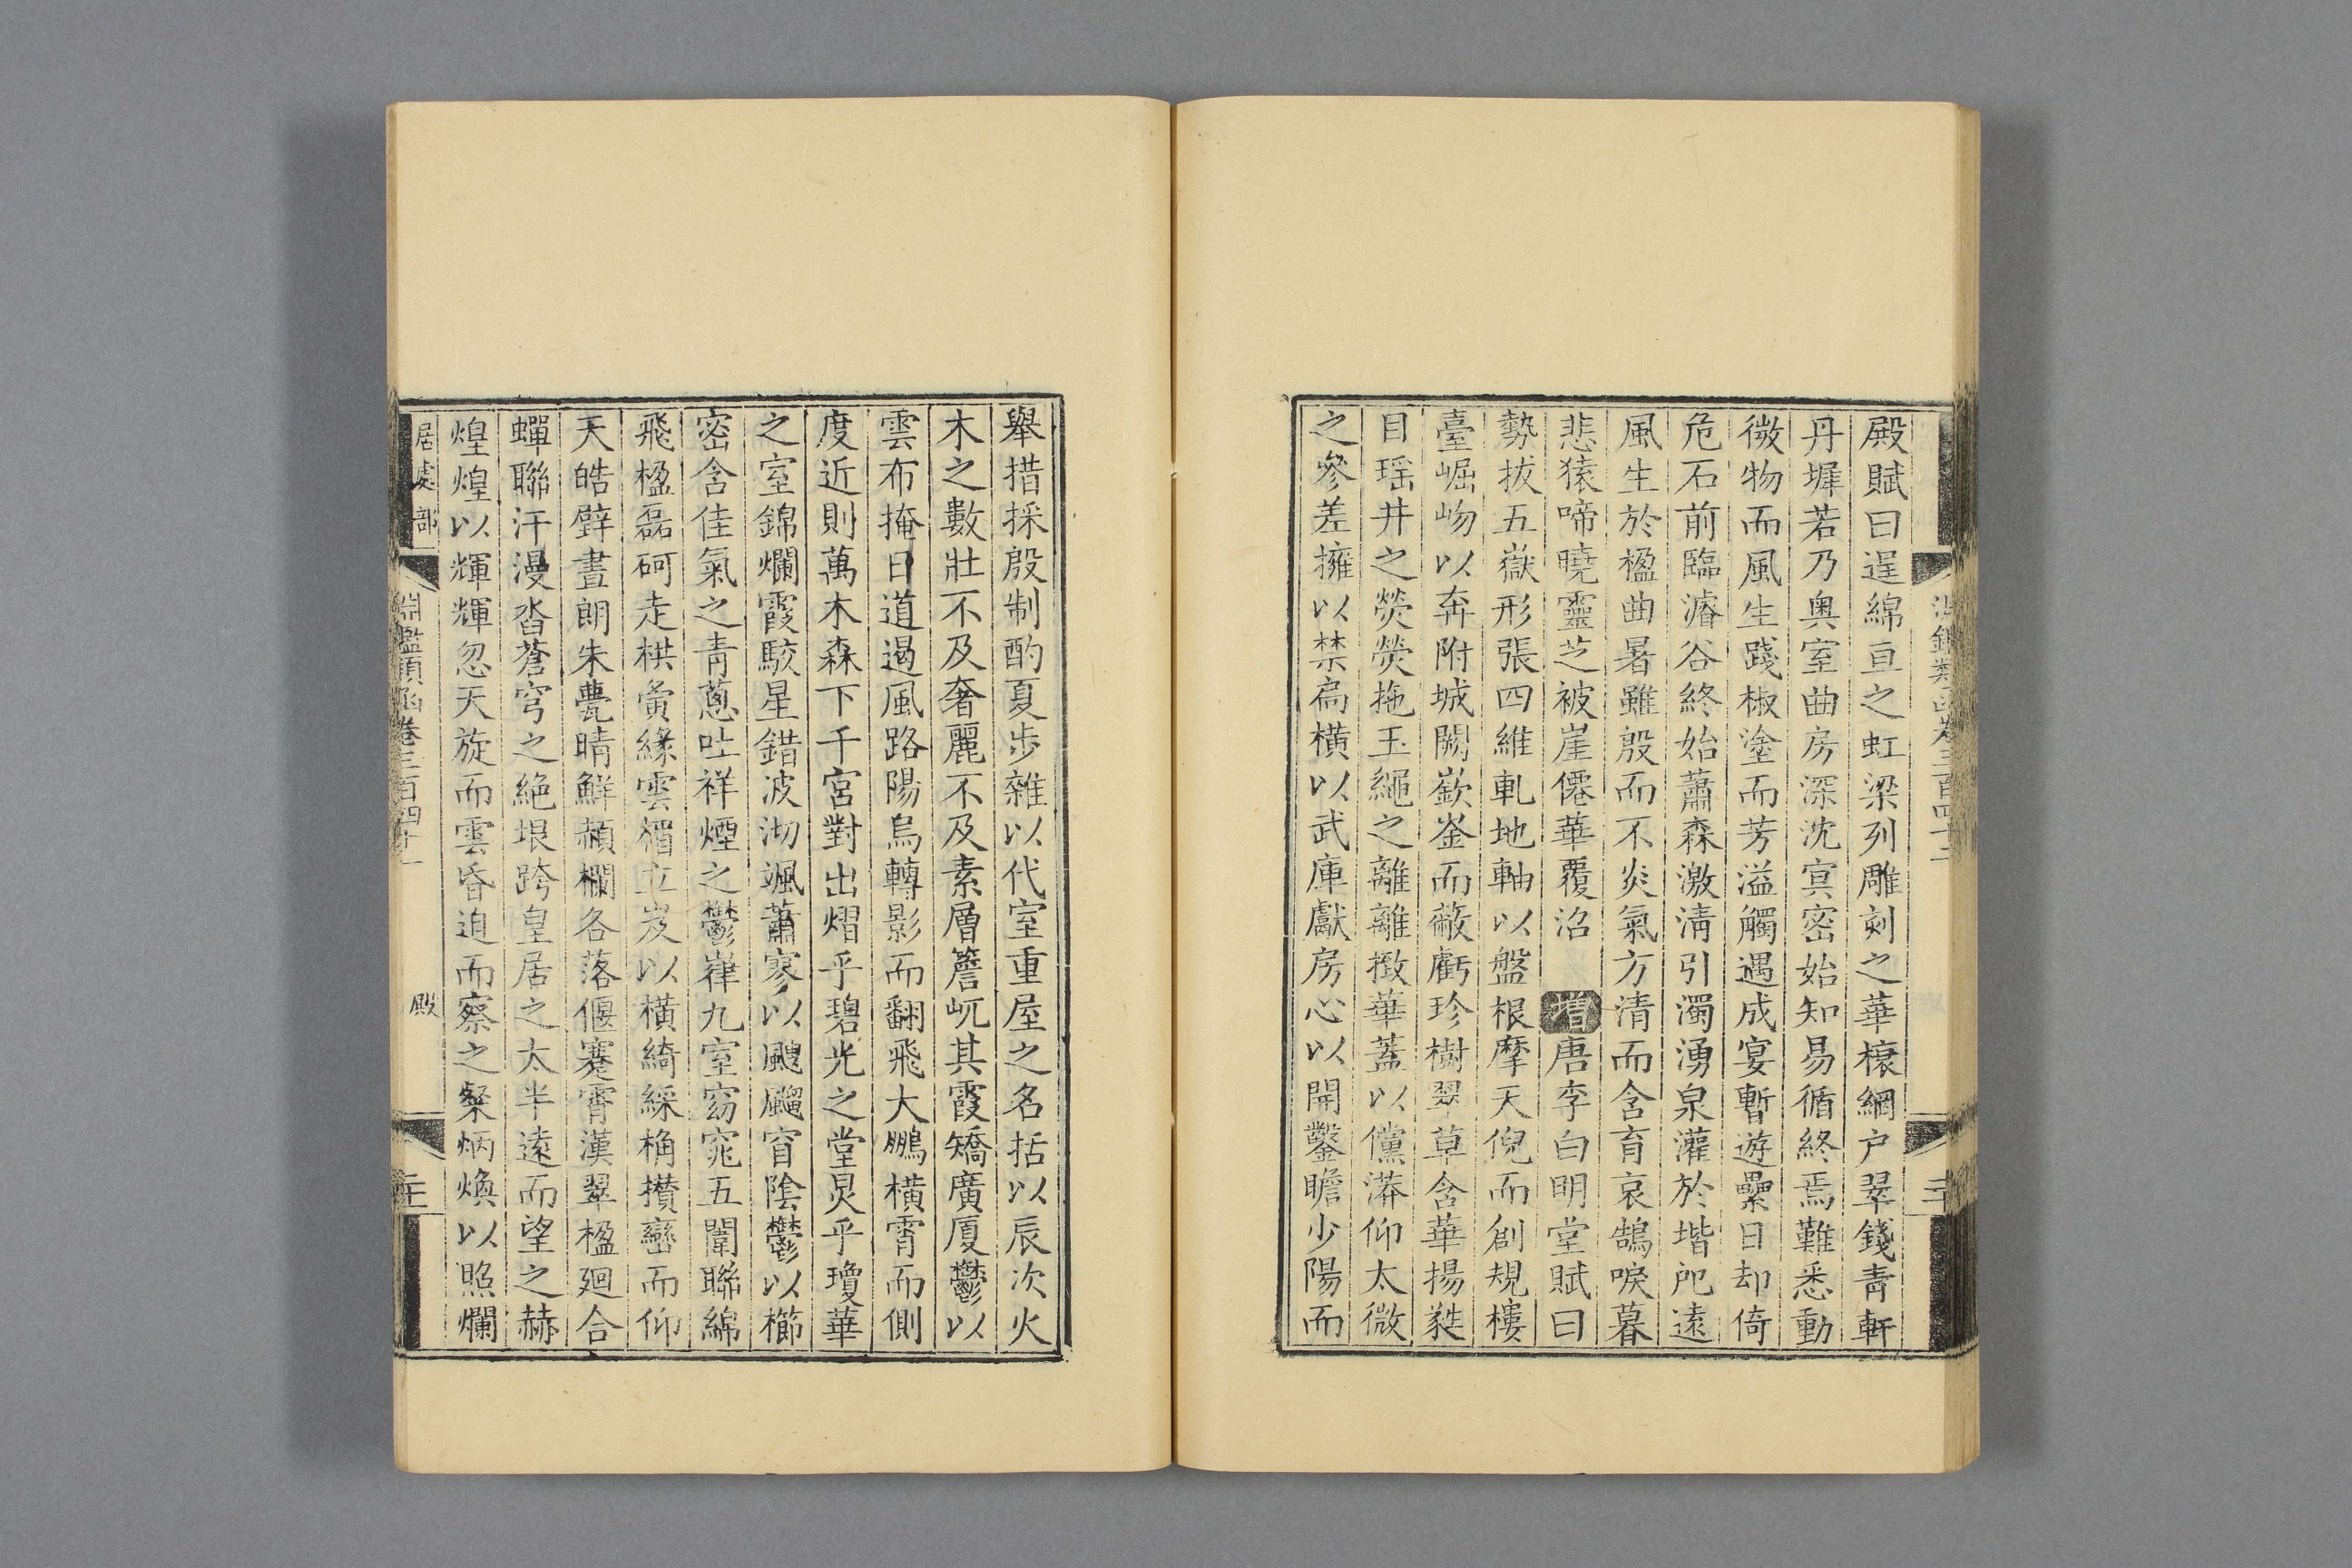 殿賦曰逞綿亘之虹梁列雕刻之華榱網户翠錢青軒
丹墀若乃奥室曲房深沈冥密始知易循終焉難悉動
微物而風生踐椒塗而芳溢觸遇成宴暫遊累日却倚
危石前臨濬谷終始蕭森激清引濁湧泉灌於堦戺遠
風生於楹曲暑雖殷而不炎氣方清而含育哀鵠唳暮
悲猿啼曉靈芝被崖僊華覆沼 增唐李白明堂賦曰
勢拔五嶽形張四維軋地軸以盤根摩天倪而創規樓
臺崛岉以奔附城闕嶔崟而蔽虧珍樹翠草含華揚蕤
目瑶井之熒熒拖玉繩之離離撽華蓋以儻漭仰太微
之參差擁以禁扃橫以武庫獻房心以開鑿瞻少陽而
舉措採殷制酌夏步雜以代室重屋之名括以辰次火
木之數壯不及奢麗不及素層簷屹其霞矯廣厦鬱以
雲布掩日道遏風路陽烏轉影而翻飛大鵬橫霄而側
度近則萬木森下千宮對出熠乎碧光之堂炅乎瓊華
之室錦爛霞駮星錯波沏颯蕭寥以颼飀窅陰鬱以櫛
密含佳氣之青蔥吐祥煙之鬱嵂九室窈窕五闈聯綿
飛楹磊砢走栱夤緣雲楣立岌以橫綺綵桷攢巒而仰
天皓壁晝朗朱甍晴鮮赬欄各落偃蹇霄漢翠楹廻合
蟬聯汗漫沓蒼穹之絶垠跨皇居之太半遠而望之赫
煌煌以輝輝忽天旋而雲昏迫而察之粲炳煥以照爛
居處部 淵鑑類函卷三百四十二 殿